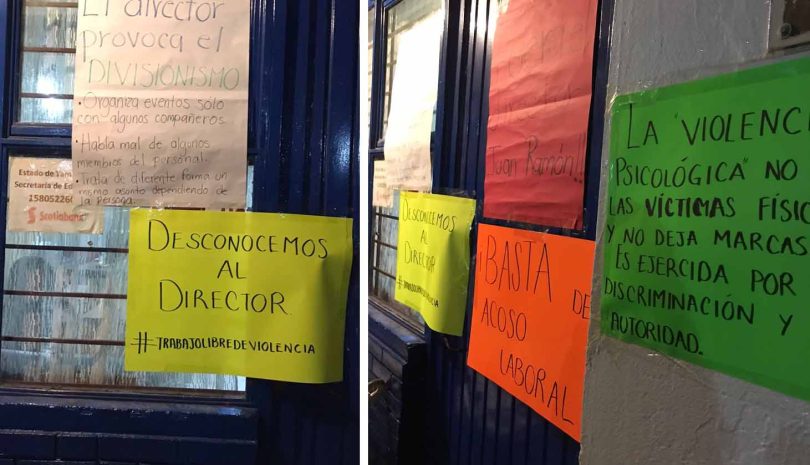 El director
provoca el
DIVISIONISMO
• Organiza eventos solo
con algunos compañeros.
• Habla mal de algunos
miembros del personal.
• Trata de diferente forma un
mismo asunto dependiendo de
la persona.
Estado de
Secretaría de Ed
158052260
Scotiabank
DESCONOCEMOS
AL
DIRECTOR.
#TRABAJOLIBREDEVIOLENCIA
DESCONOCEMOS
AL
DIRECTOR.
#TRABAJOLIBREDEVIOLENCIA
Juan Ramón!!
¡BASTA DE
ACOSO
LABORAL
LA "VIOLENCI
PSICOLÓGICA" NO
LAS VÍCTIMAS FÍSIC
Y NO DEJA MARCAS
ES EJERCIDA POR
DISCRIMINACIÓN Y
AUTORIDAD.